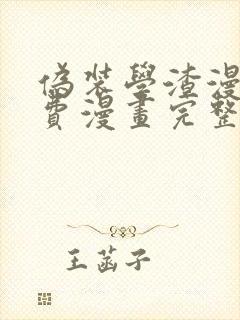 偽裝學渣漫
費漫畫完整
王菡子